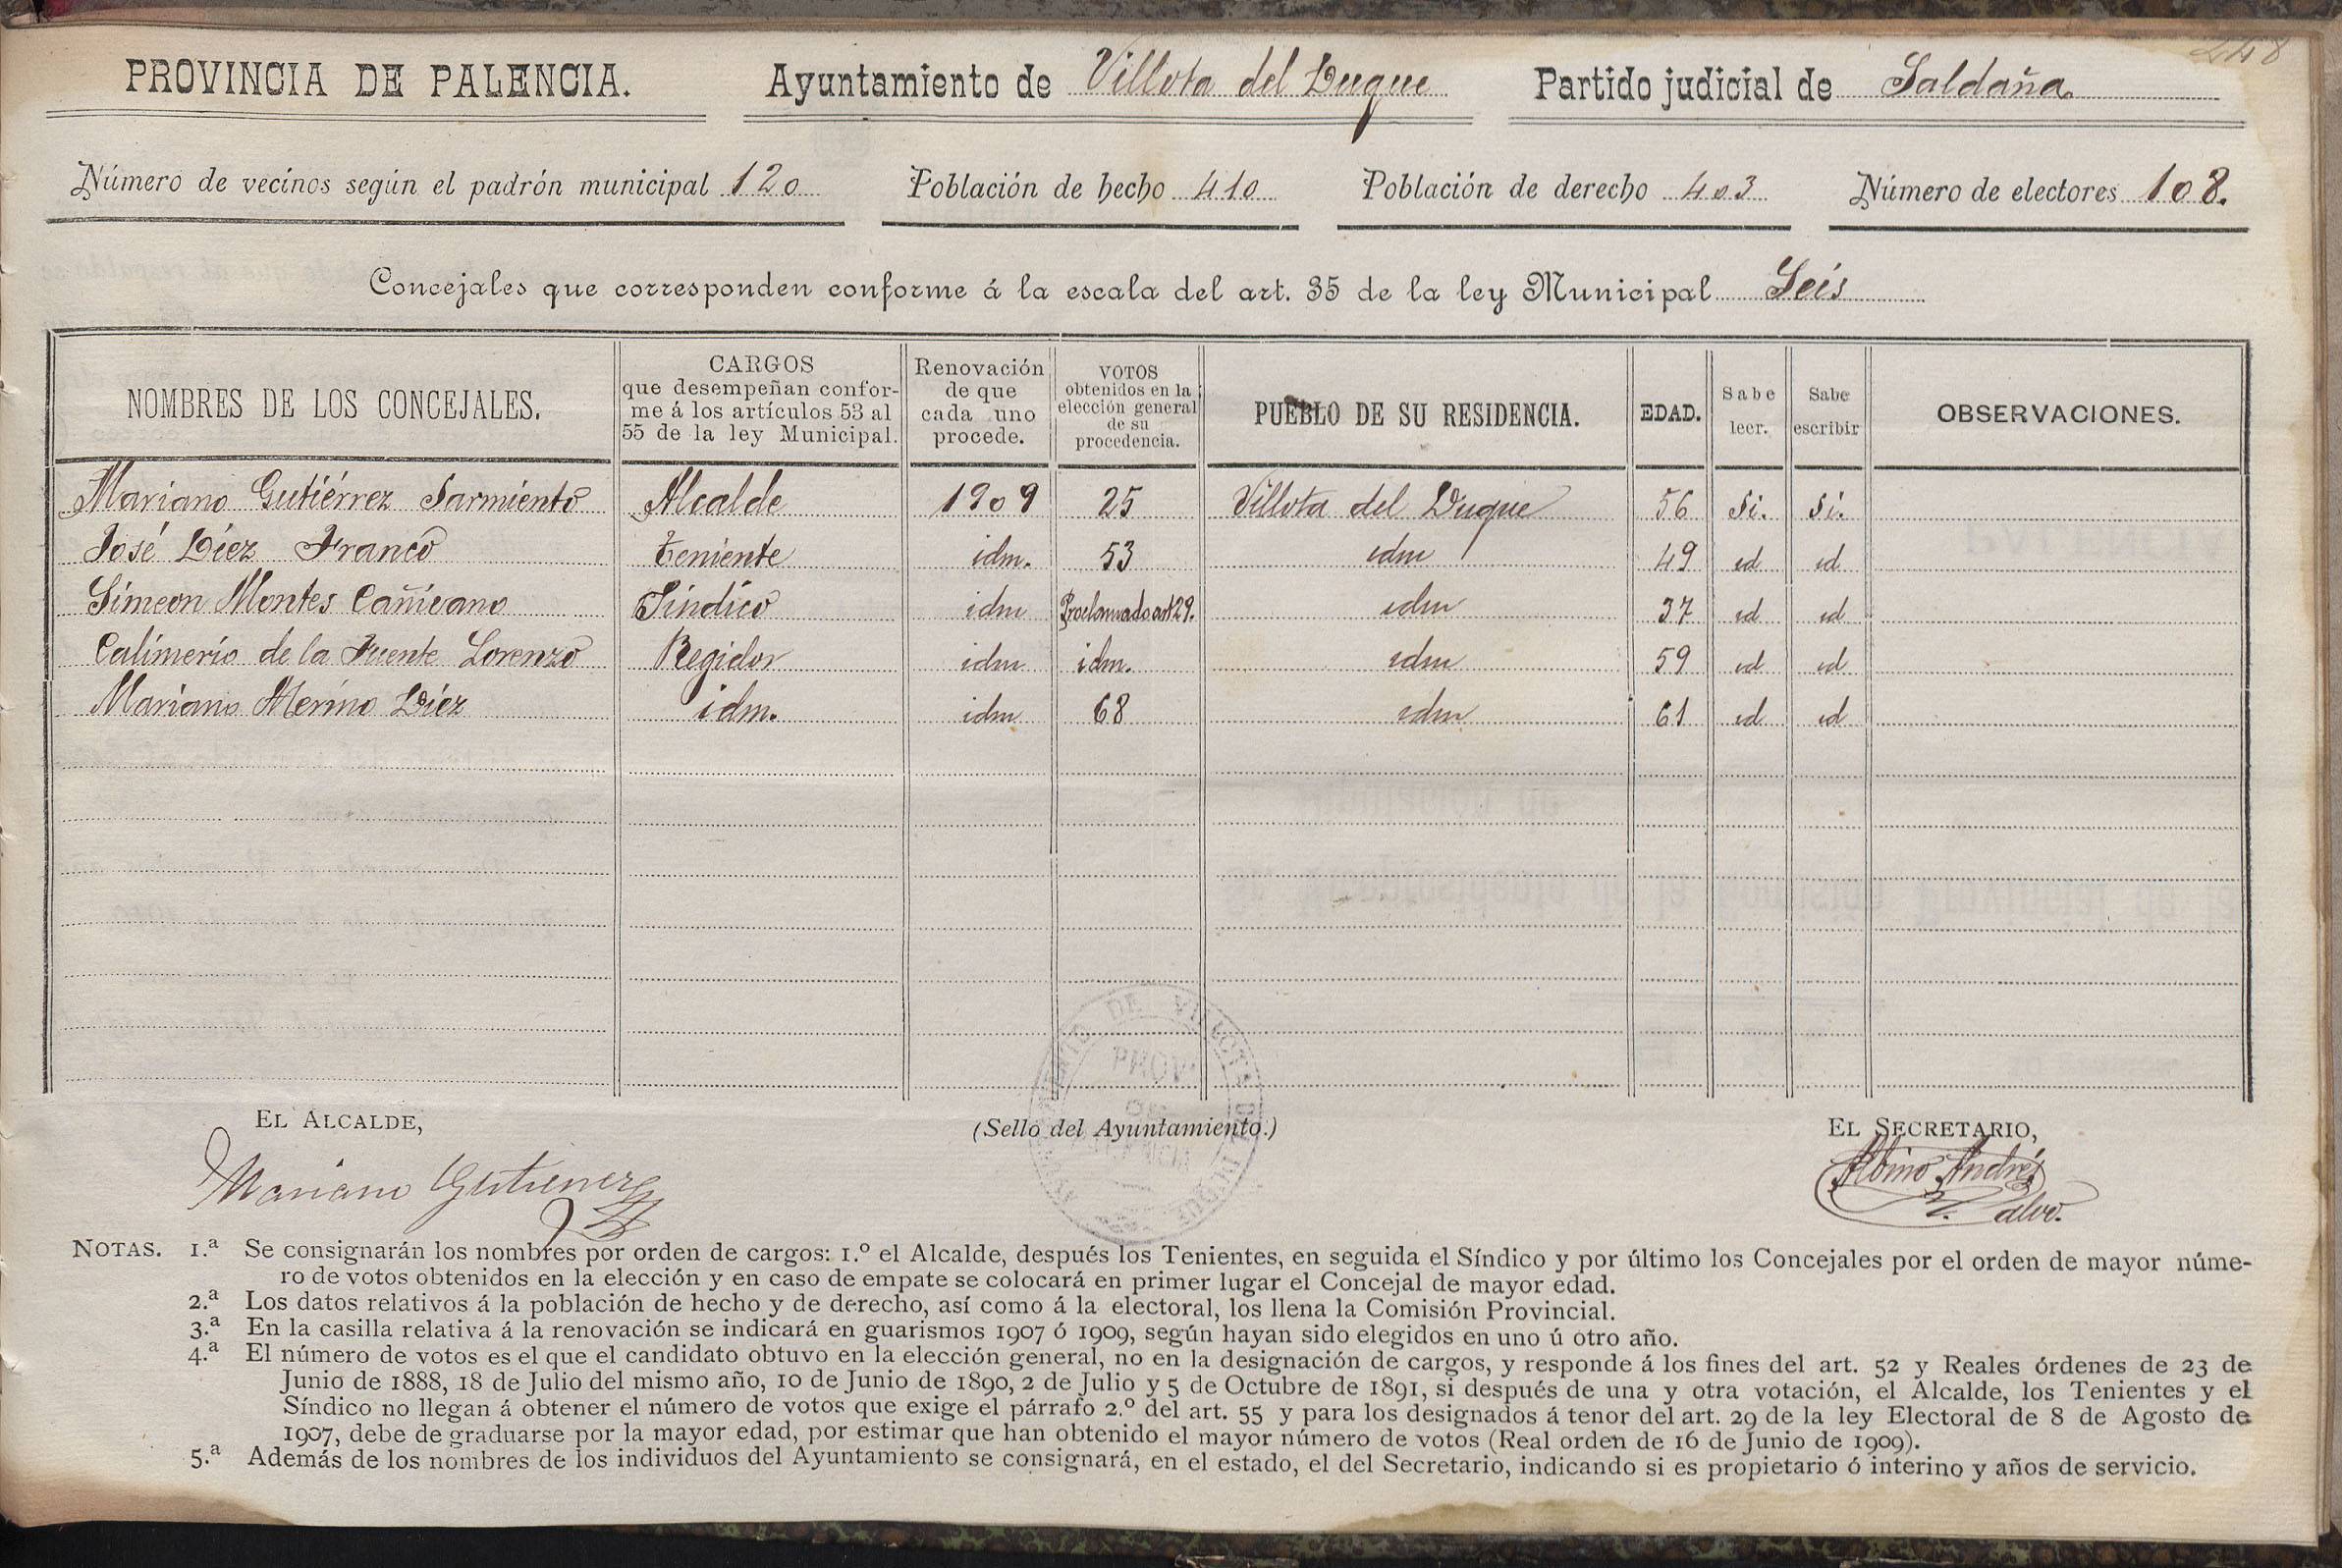 248
PROVINCIA DE PALENCIA. Ayuntamiento de Villota del Duque Partido judicial de Saldaña
Número de vecinos según el padrón municipal 120 Población de hecho 410 Población de derecho 403 Número de electores 108.
Concejales que corresponden conforme á la escala del art. 35 de la ley Municipal Seis
NOMBRES DE LOS CONCEJALES. CARGOS que desempeñan confor-me á los artículos 53 al 55 de la ley Municipal. Renovación de que cada uno procede. VOTOS obtenidos en la elección general de su procedencia. PUEBLO DE SU RESIDENCIA. EDAD. Sabe leer. Sabe escribir OBSERVACIONES.
Mariano Gutiérrez Sarmiento Alcalde 1909 25 Villota del Duque 56 Si. Si.
José Diez Franco Teniente idm. 53 idm 49 id id
Simeon Montes Cañicano Síndico idm Proclamado art 29. idm 37 id id
Calimerio de la Fuente Lorenzo Regidor idm idm. idm 59 id id
Mariano Merino Diez idm. idm 68 idm 61 id id
EL ALCALDE, (Sello del Ayuntamiento.) EL SECRETARIO,
Mariano Gutierrez Albino Andrés
Calvo.
NOTAS. 1.ª Se consignarán los nombres por orden de cargos: 1.º el Alcalde, después los Tenientes, en seguida el Síndico y por último los Concejales por el orden de mayor núme-
ro de votos obtenidos en la elección y en caso de empate se colocará en primer lugar el Concejal de mayor edad.
2.ª Los datos relativos á la población de hecho y de derecho, así como á la electoral, los llena la Comisión Provincial.
3.ª En la casilla relativa á la renovación se indicará en guarismos 1907 ó 1909, según hayan sido elegidos en uno ú otro año.
4.ª El número de votos es el que el candidato obtuvo en la elección general, no en la designación de cargos, y responde á los fines del art. 52 y Reales órdenes de 23 de
Junio de 1888, 18 de Julio del mismo año, 10 de Junio de 1890, 2 de Julio y 5 de Octubre de 1891, si después de una y otra votación, el Alcalde, los Tenientes y el
Síndico no llegan á obtener el número de votos que exige el párrafo 2.º del art. 55 y para los designados á tenor del art. 29 de la ley Electoral de 8 de Agosto de
1907, debe de graduarse por la mayor edad, por estimar que han obtenido el mayor número de votos (Real orden de 16 de Junio de 1909).
5.ª Además de los nombres de los individuos del Ayuntamiento se consignará, en el estado, el del Secretario, indicando si es propietario ó interino y años de servicio.